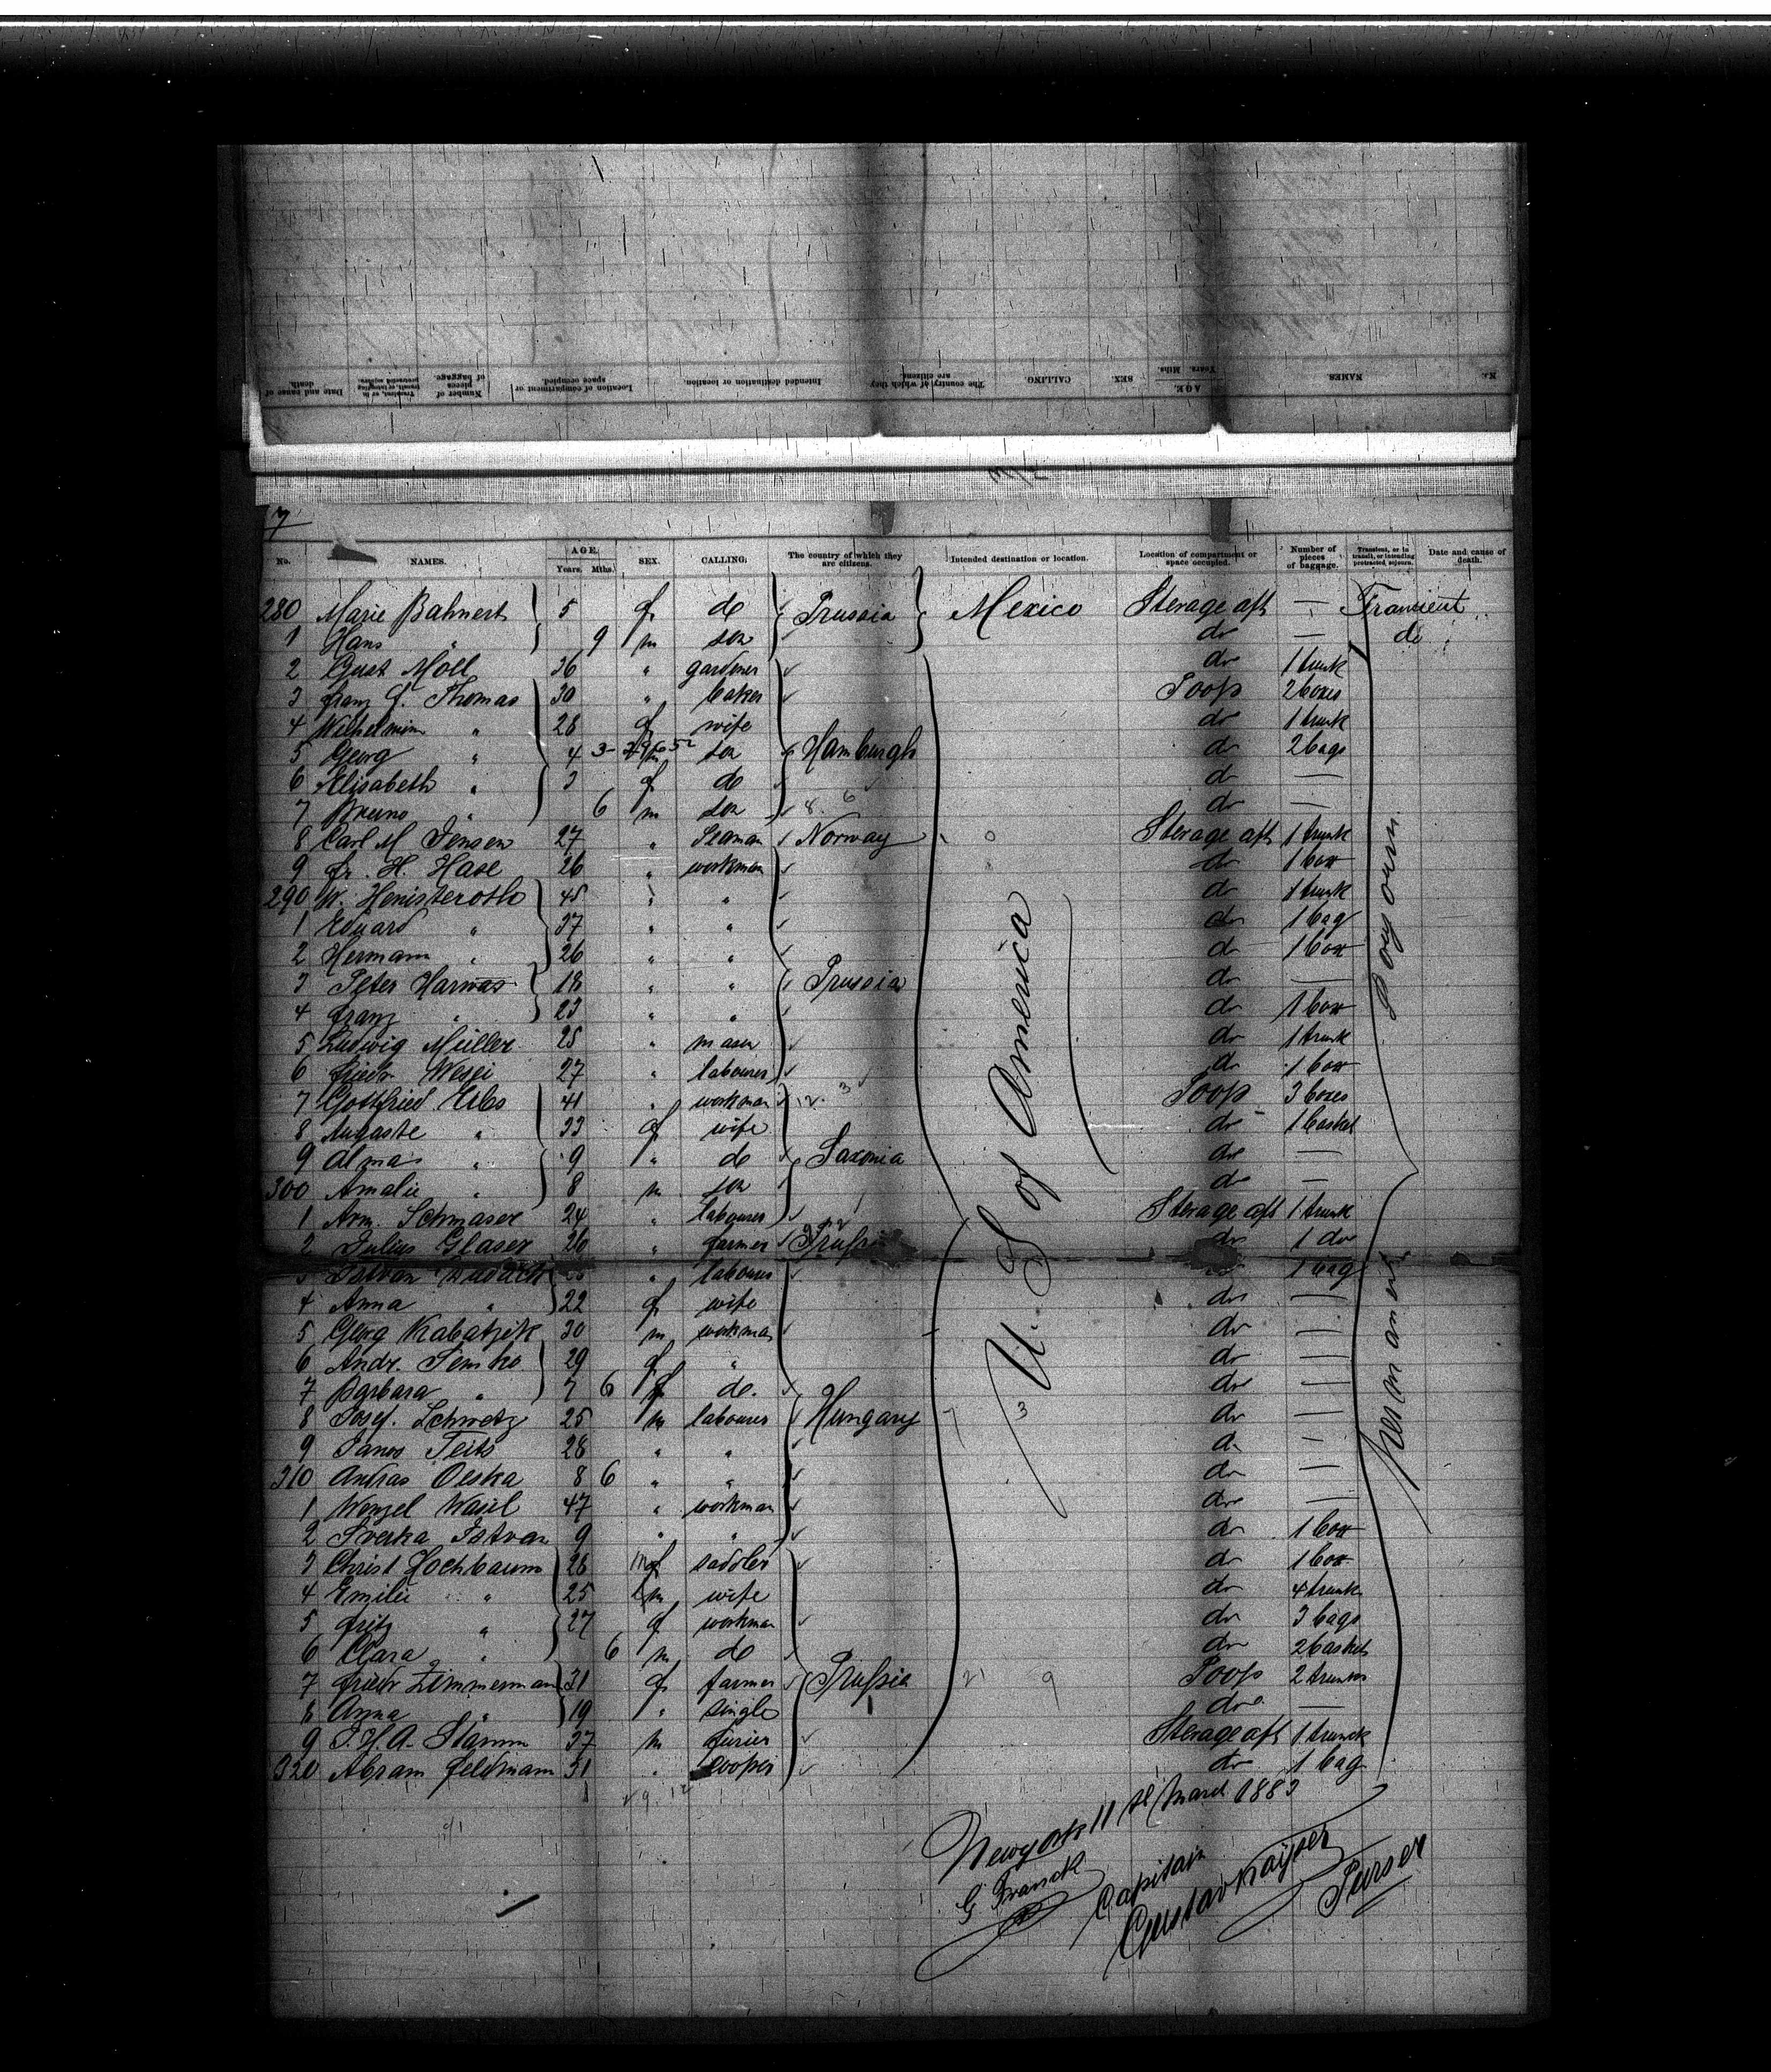 7
No. NAMES. AGE. Years. Mths. SEX. CALLING. The country of which they are citizens. Intended destination or location. Location of compartment or space occupied. Number of pieces of baggage. Transient, or in transit, or intending protracted sojourn. Date and cause of death.
280 Marie Bahnert 5 f do Prussia Mexico Sterage aft — Transient
1 Hans " 9 m son do — do
2 Gust Moll 36 " gardener do 1 trunk
3 Franz G. Thomas 30 " baker Poop 2 boxes
4 Wilhelmine " 28 f wife do 1 trunk
5 Georg " 4 son Hamburgh do 2 bags
6 Elisabeth " 3 f do do —
7 Bruno " 6 m son do —
8 Carl M Jensen 27 " Seaman Norway Sterage aft 1 trunk
9 Fr. H. Hase 26 " workman do 1 box
290 W. Henisteroth 45 " " do 1 trunk
1 Eduard " 37 " " do 1 bag
2 Hermann " 26 " " do 1 box
3 Peter Harwas 18 " " Prussia do —
4 Franz " 23 " " do 1 box
5 Ludwig Müller 25 " mason do 1 trunk
6 Friedr Wesei 27 " labourer do 1 box
7 Gottfried Erbs 41 " workman Poop 3 boxes
8 Auguste " 33 f wife do 1 basket
9 Alma " 9 " do Saxonia do —
300 Amalie " 8 m son do —
1 Arm. Schmaser 24 " labourer Sterage aft 1 trunk
2 Julius Glaser 26 " farmer Prussia do 1 do
3 Istvan labourer 1 bag
4 Anna " 22 f wife do —
5 Georg Kabatzik 30 m workman do —
6 Andr. Semko 29 f " do —
7 Barbara " 7 6 f do. do —
8 Josef. Schwetz 25 m labourer Hungary do —
9 Janos Teits 28 " " do —
310 Andras Oeska 8 6 " " do —
1 Wenzel Wasil 47 " workman do —
2 Sverka Istvan 9 " " do 1 box
3 Christ Hochbaum 28 m saddler do 1 box
4 Emilie " 25 f wife do 4 trunk
5 Fritz " 27 f workman do 3 bags
6 Clara " 6 m do do 2 baskets
7 Friedr Zimmerman 31 f farmer Prussia Poop 2 trunks
8 Anna " 19 " single do —
9 J. H. A. Stamm 37 m furier Sterage aft 1 trunck
320 Abram Feldmann 31 " Cooper do 1 bag
U. S of America
Soyourn
permanent
Newyork 11 March 1883
G Franck
Capitain
Gustav Kayser
Purser